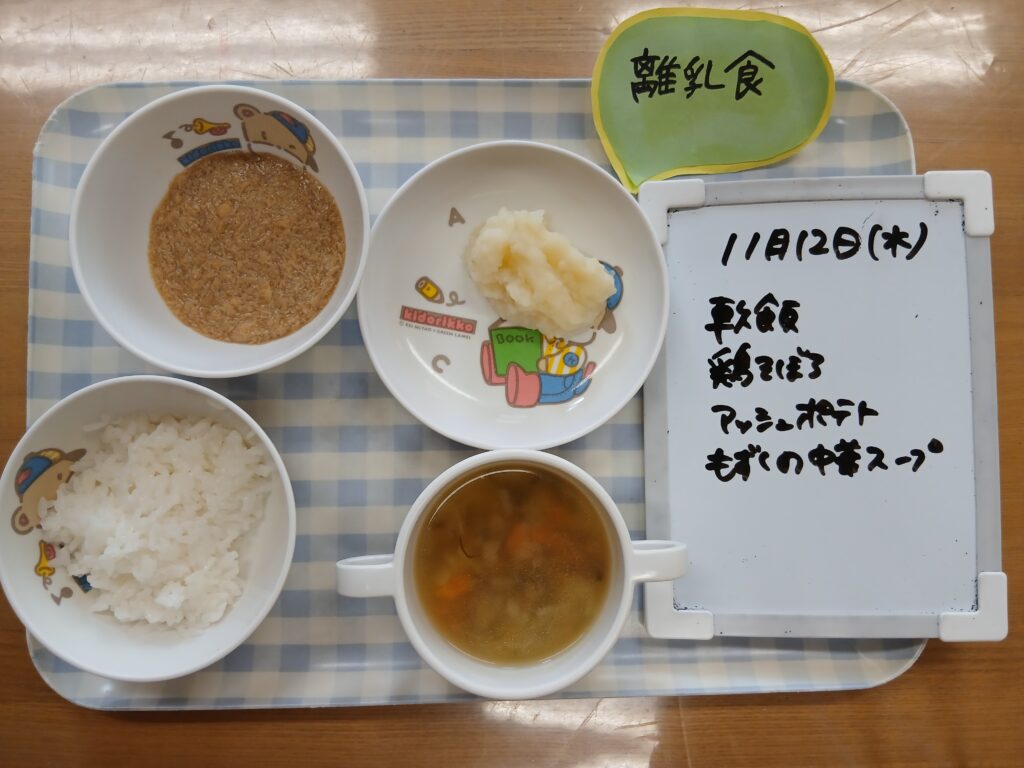 離乳食
11月12日(水)
軟飯
鶏そぼろ
マッシュポテト
もずくの中華スープ
A
kidorikko
Book
C